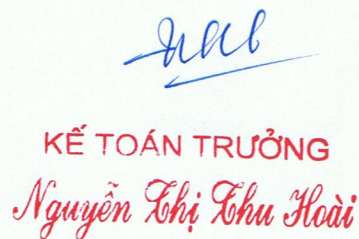 KẾ TOÁN TRƯỞNG
Nguyễn Thị Thu Hoài